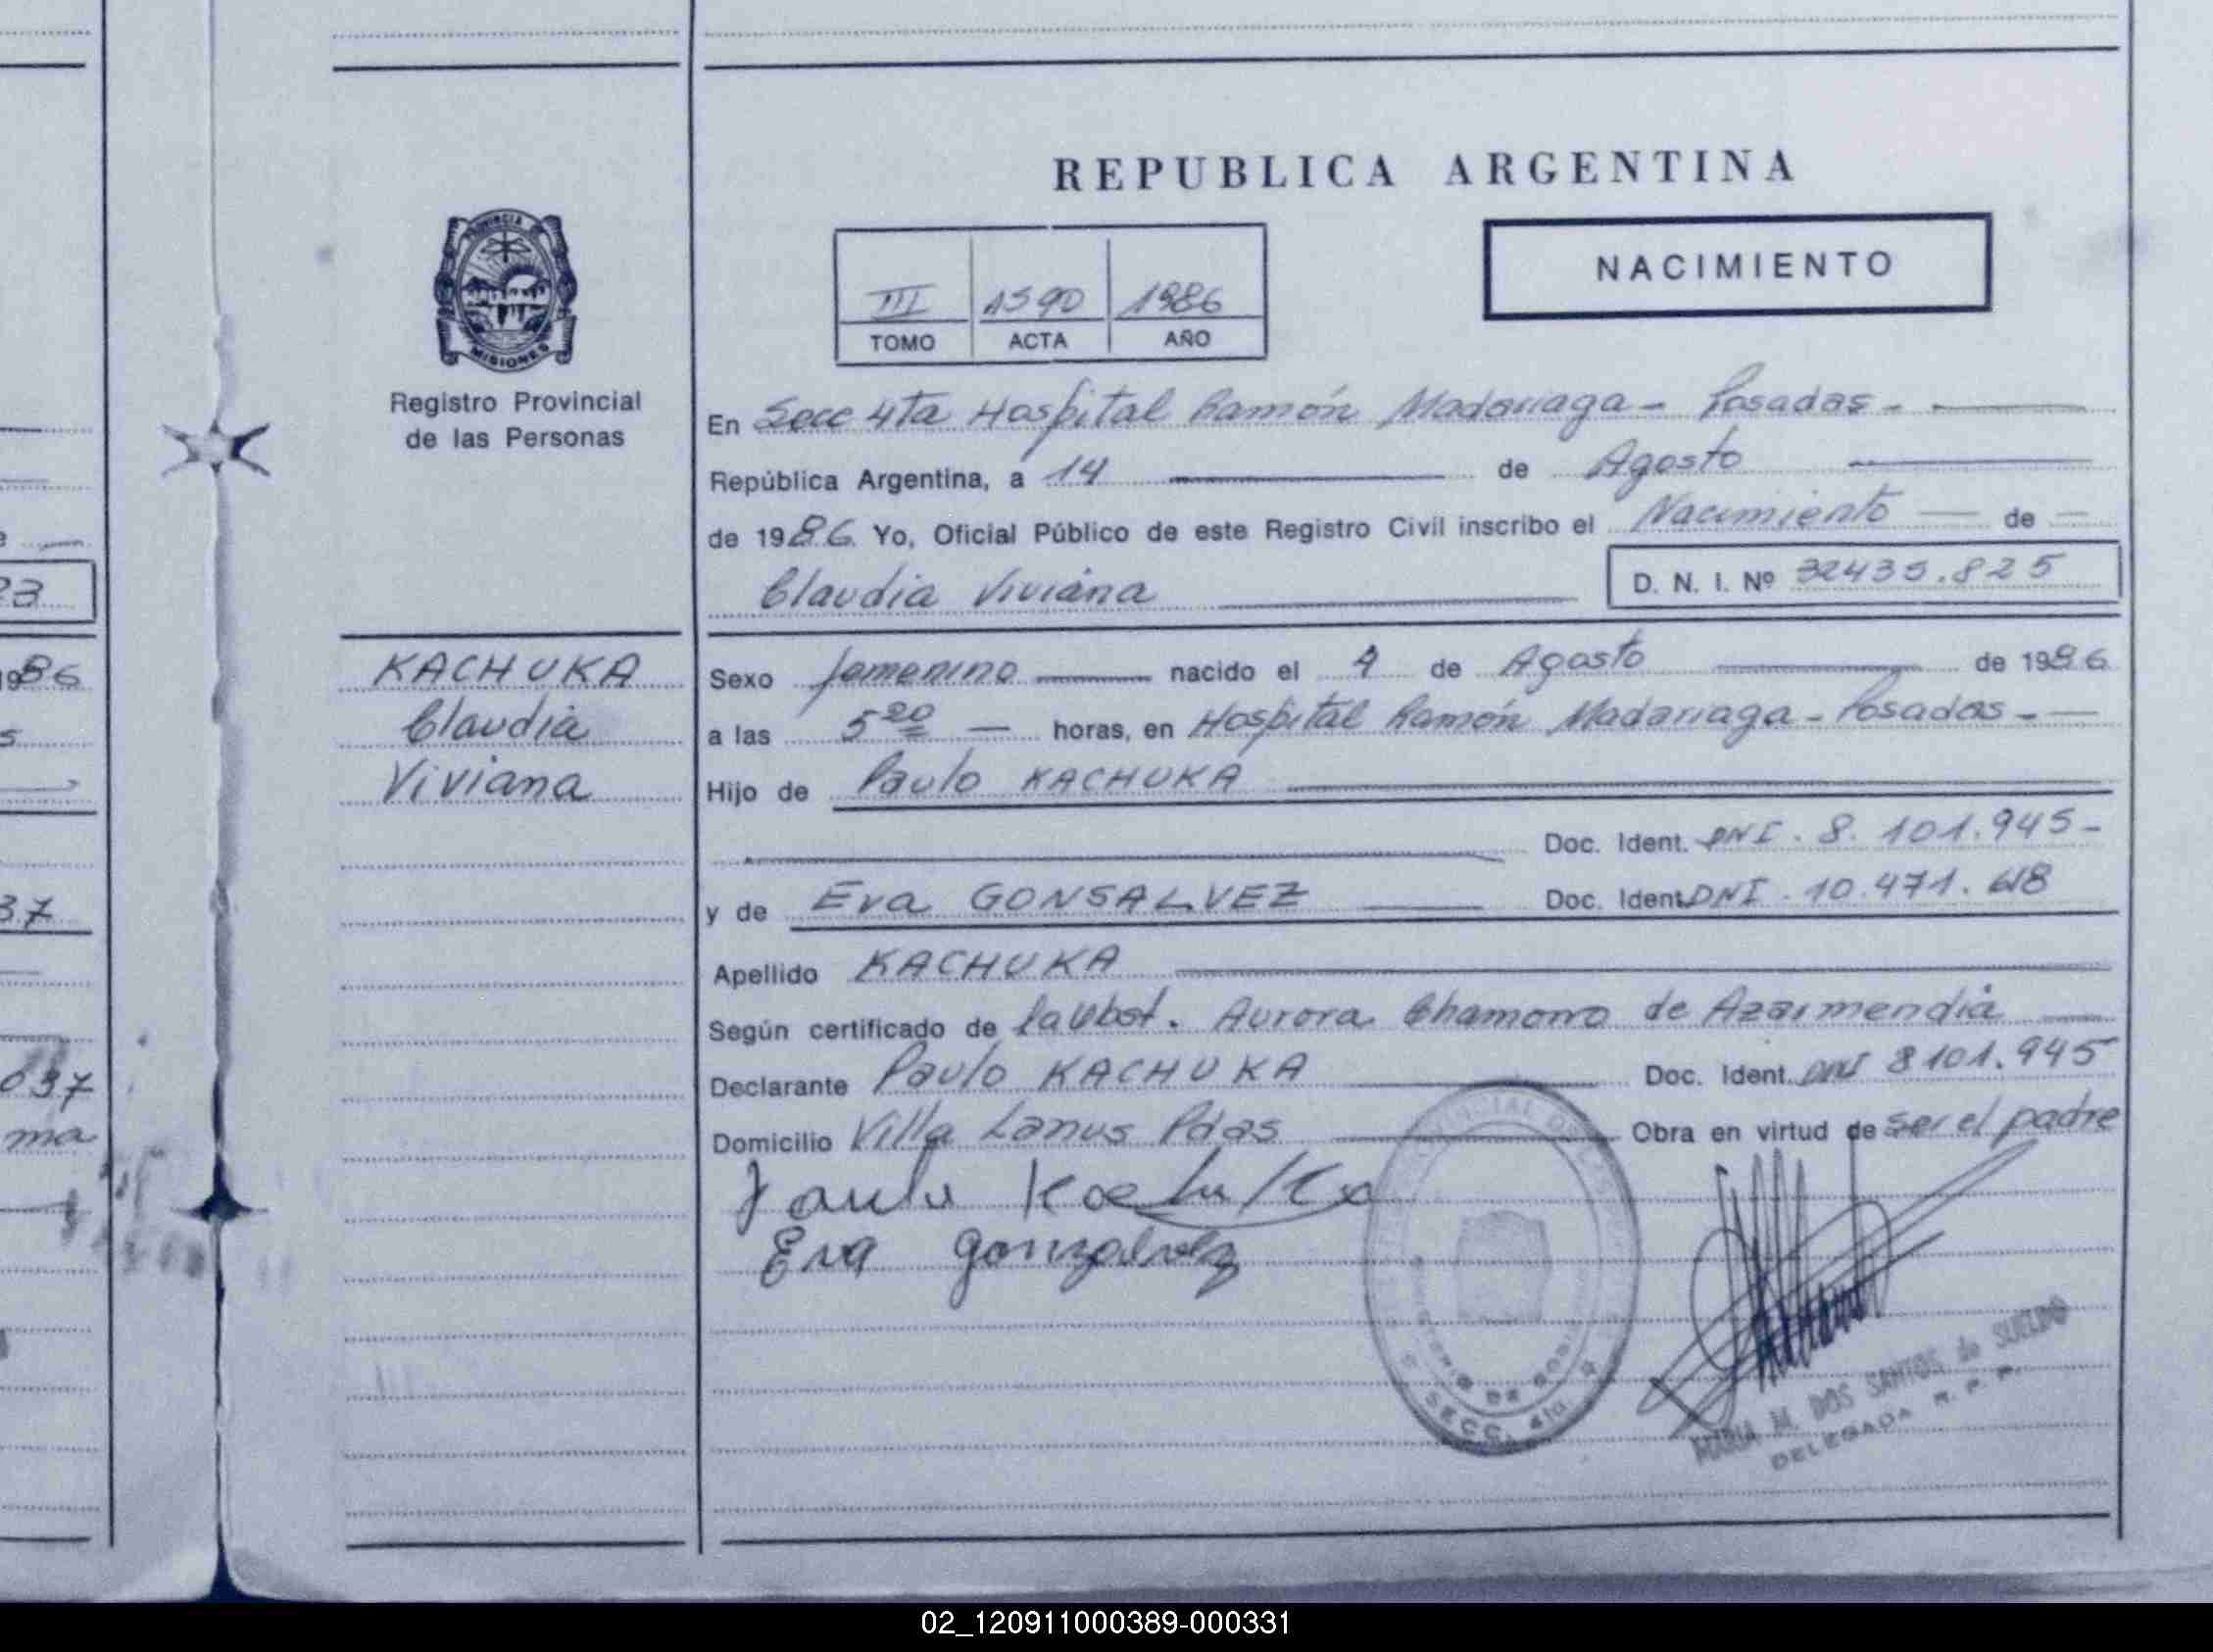 REPUBLICA ARGENTINA
NACIMIENTO
III 1590 1986
TOMO ACTA AÑO
PROVINCIA DE
MISIONES
Registro Provincial
de las Personas
En Secc 4ta Hospital Ramón Madariaga - Posadas -
República Argentina, a 14 de Agosto
de 1986 Yo, Oficial Público de este Registro Civil inscribo el Nacimiento de
Claudia Viviana D. N. I. Nº 32435.825
KACHUKA
Claudia
Viviana
Sexo femenino nacido el 4 de Agosto de 1986
a las 5 20 horas, en Hospital Ramón Madariaga - Posadas -
Hijo de Paulo KACHUKA
Doc. Ident. DNI. 8.101.945 -
y de Eva GONSALVEZ Doc. Ident. DNI. 10.471.618
Apellido KACHUKA
Según certificado de la Obst. Aurora Chamorro de Azaimendia
Declarante Paulo KACHUKA Doc. Ident. DNI 8101.945
Domicilio Villa Lanus Pdas Obra en virtud de ser el padre
Eva gonzalvez
SECC. 4ta.
MARIA M. DOS SANTOS de SUELDO
DELEGADA R. P. P.
23
1986
s
37
037
ma
02_120911000389-000331